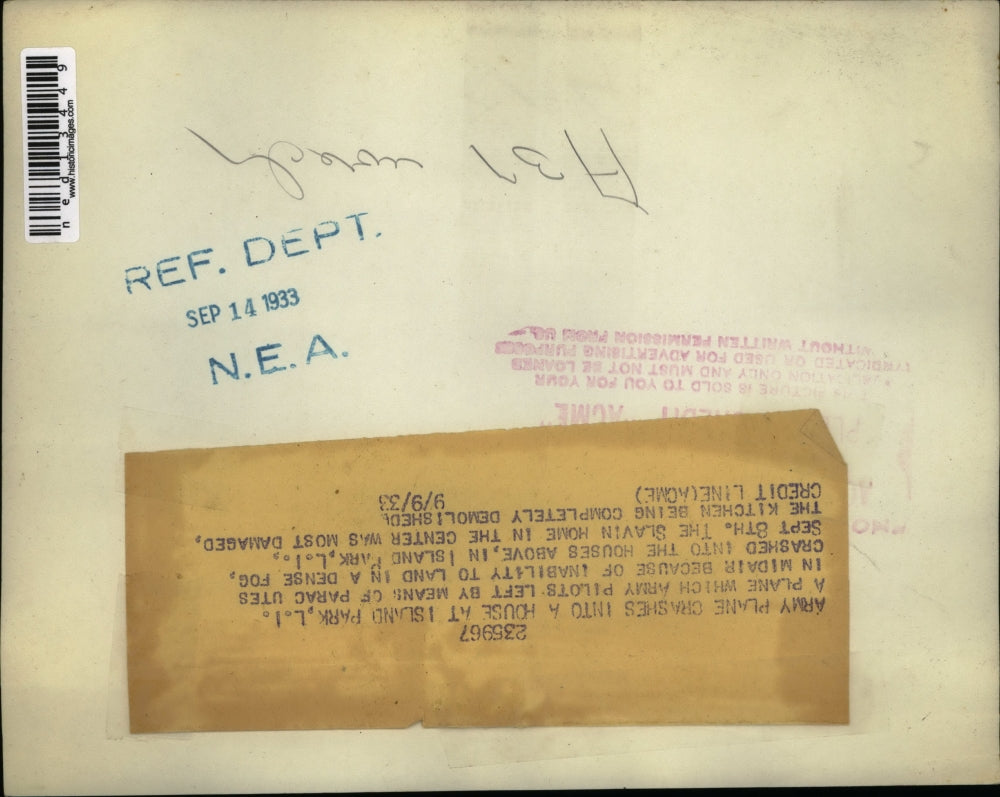 ned13449
www.historicimages.com
REF. DEPT.
SEP 14 1933
N.E.A.
CREDIT "ACME"
PICTURE IS SOLD TO YOU FOR YOUR
PUBLICATION ONLY AND MUST NOT BE LOANED
SYNDICATED OR USED FOR ADVERTISING PURPOSES
WITHOUT WRITTEN PERMISSION FROM US.
235967
ARMY PLANE CRASHES INTO A HOUSE AT ISLAND PARK,L.I.
A PLANE WHICH ARMY PILOTS LEFT BY MEANS OF PARAC UTES
IN MIDAIR BECAUSE OF INABILITY TO LAND IN A DENSE FOG,
CRASHED INTO THE HOUSES ABOVE, IN ISLAND PARK,L.I.,
SEPT 8TH. THE SLAVIN HOME IN THE CENTER WAS MOST DAMAGED,
THE KITCHEN BEING COMPLETELY DEMOLISHED.
CREDIT LINE(ACME) 9/9/33